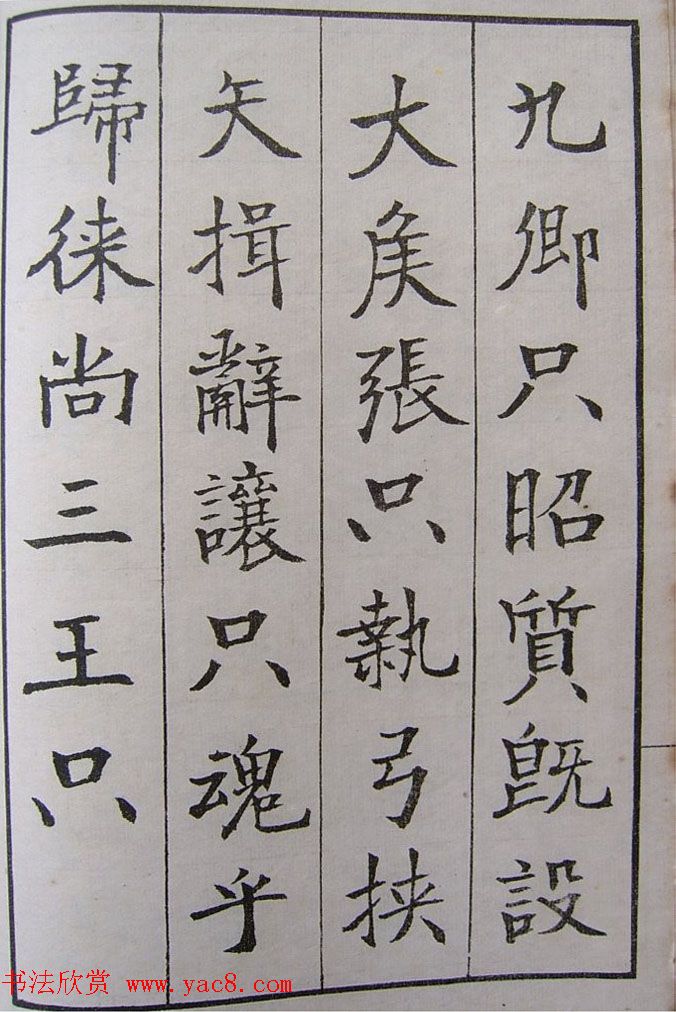 九卿只昭質旣設
大矦張只執弓挟
矢揖辭讓只魂乎
歸徠尚三王只
书法欣赏 www.yac8.com